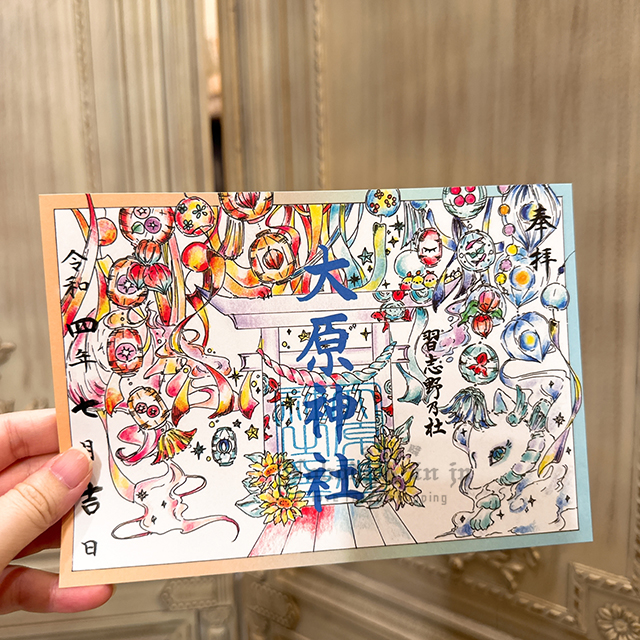 奉拝
習志野乃社
大原神社
令和四年七月吉日